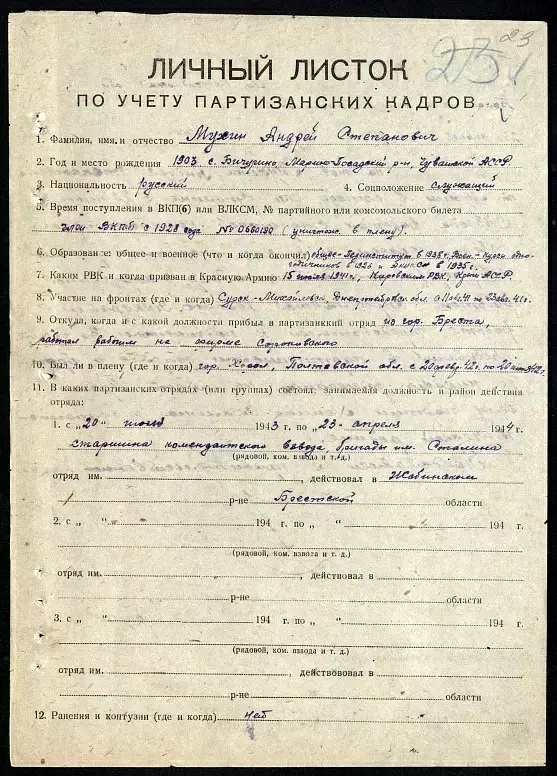 23
231
ЛИЧНЫЙ ЛИСТОК
ПО УЧЕТУ ПАРТИЗАНСКИХ КАДРОВ
1. Фамилия, имя и отчество Мухин Андрей Степанович
2. Год и место рождения 1903 с. Бичурино, Марийно-Посадский р-н, Чувашской АССР
3. Национальность русский 4. Соцположение служащий
5. Время поступления в ВКП(б) или ВЛКСМ, № партийного или комсомольского билета
член ВКПб с 1928 года № 0660190 (уничтож. в плену)
6. Образование: общее и военное (что и когда окончил) общее - Пединститут в 1938 г. Воен. - Курсы
в 1926 и в 1935 г.
7. Каким РВК и когда призван в Красную Армию 15 июля 1941 г., Кировским РВК, Крым АССР
8. Участие на фронтах (где и когда) Сурск-Михайловка, Днепропетровск. обл. с
9. Откуда, когда и с какой должности прибыл в партизанский отряд из гор. Бреста,
работал рабочим на
10. Был ли в плену (где и когда) гор. Хорол, Полтавской обл. с
11. В каких партизанских отрядах (или группах) состоял, занимаемая должность и район действия
отряда:
1. с „20“ июля 1943 г. по „23“ апреля 1944 г.
старшина комендантского взвода, бригады им. Сталина
(рядовой, ком. взвода и т. д.)
отряд им. , действовал в Жабинском
р-не Брестской области
2. с „ “ 194 г. по „ “ 194 г.
(рядовой, ком. взвода и т. д.)
отряд им. , действовал в
р-не области
3. с „ “ 194 г. по „ “ 194 г.
(рядовой, ком. взвода и т. д.)
отряд им. , действовал в
р-не области
12. Ранения и контузии (где и когда) нет